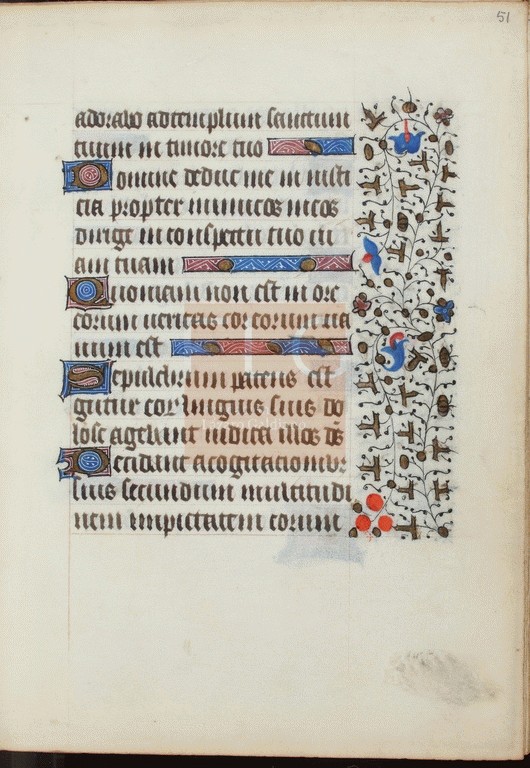 51
adorabo ad templum sanctum
tuum in timore tuo
Domine deduc me in iusti
cia propter inimicos meos
dirige in conspectu tuo ui
am tuam
Quoniam non est in ore
eorum ueritas cor eorum ua
num est
Sepulchrum patens est
guttur eorum linguis suis do
lose agebant iudica illos d̅s̅
Decidant a cogitacionibꝰ
suis secundum multitudi
nem impietatem eorum